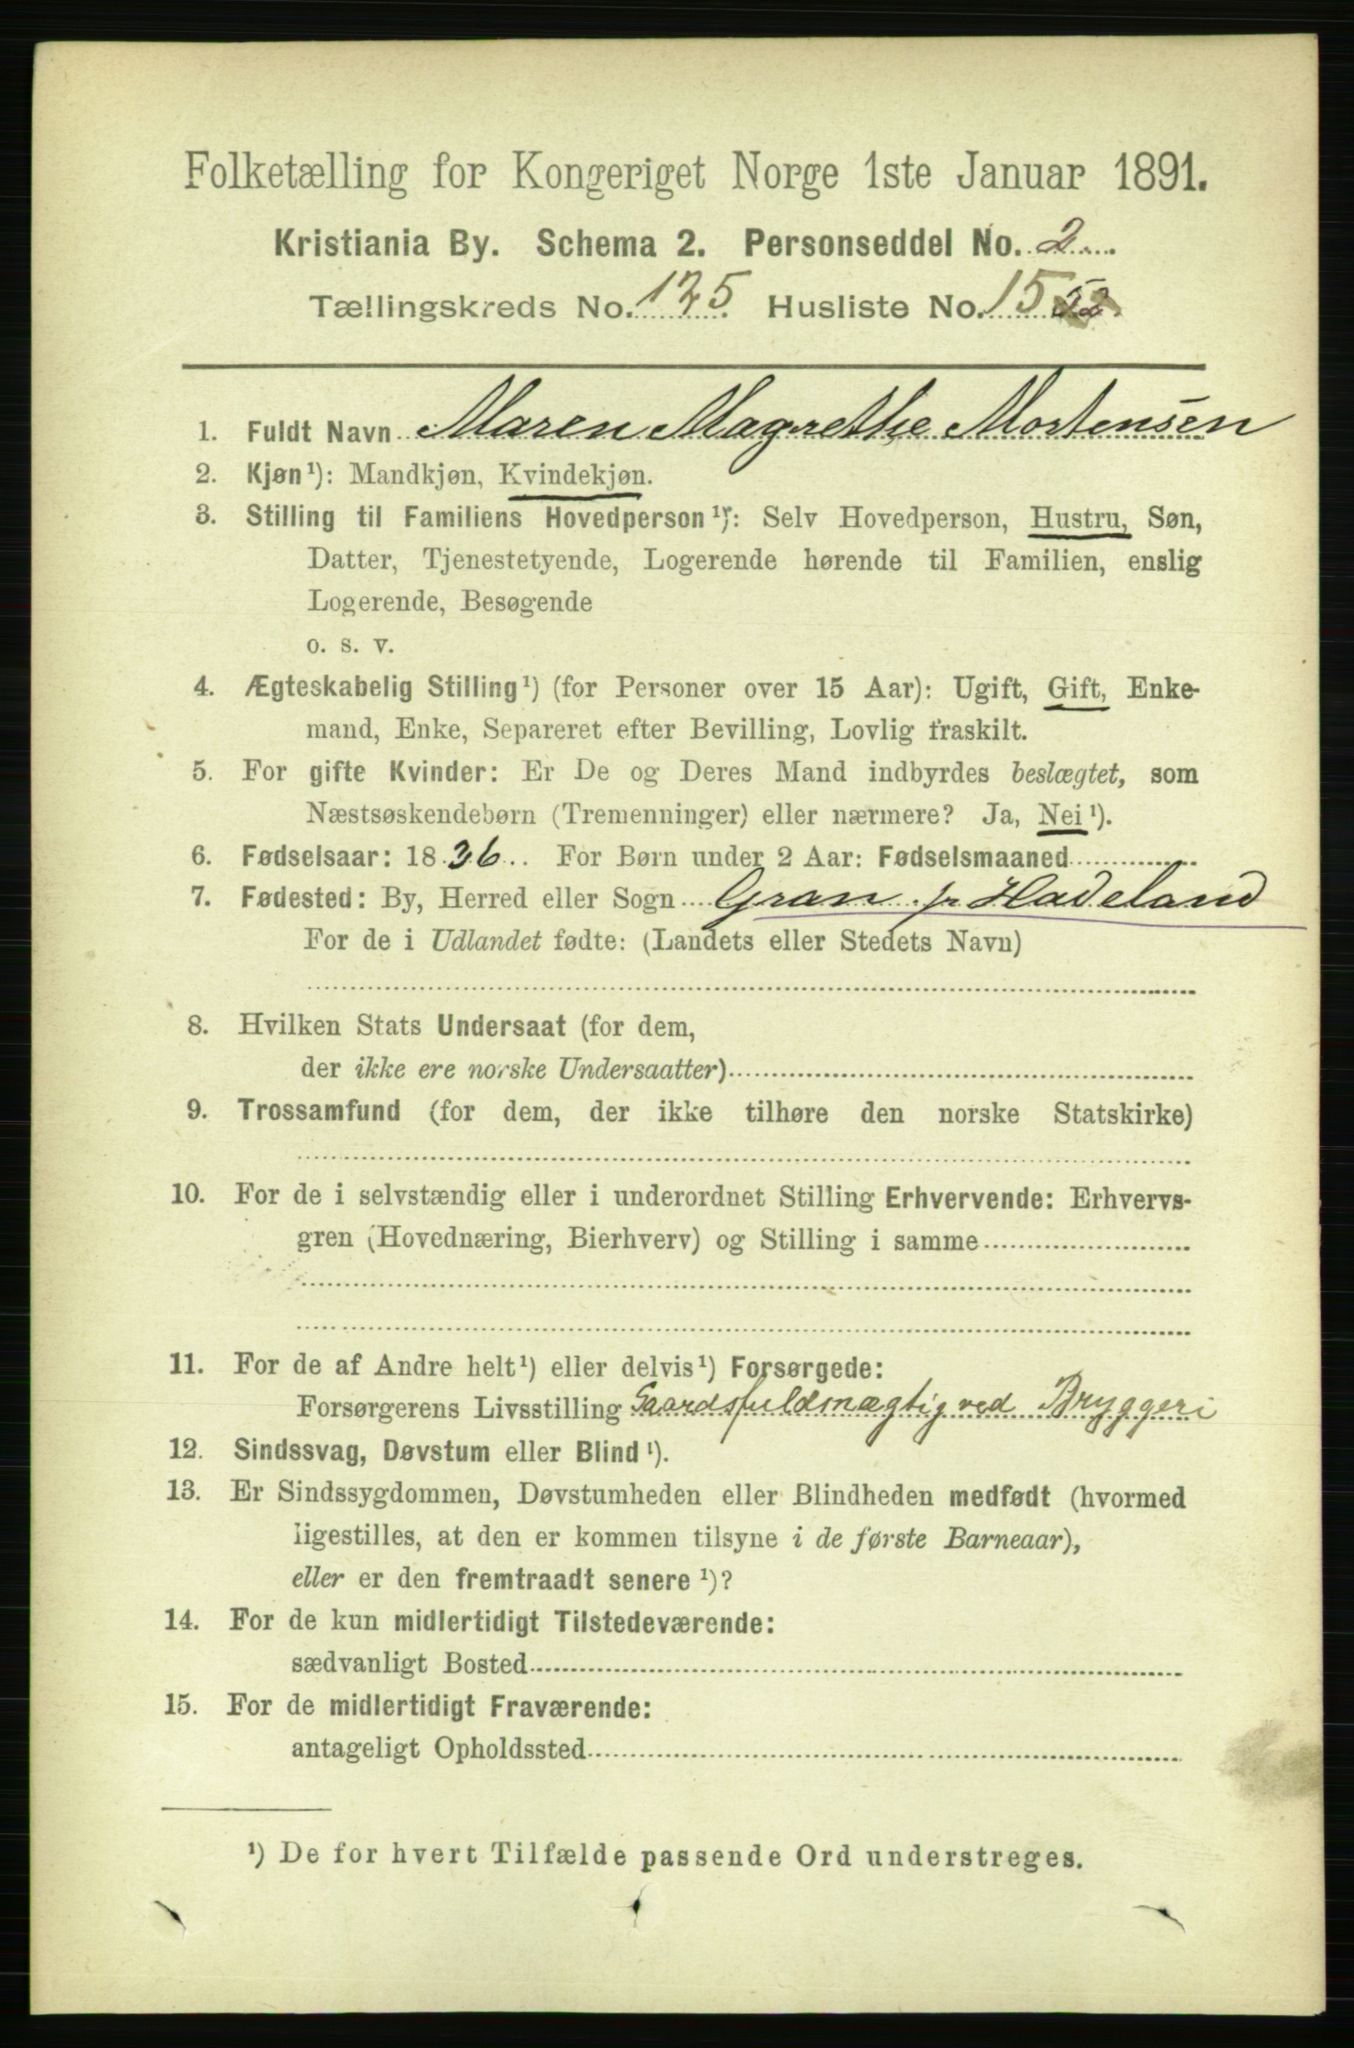 Folketælling for Kongeriget Norge 1ste Januar 1891.
Kristiania By. Schema 2. Personseddel No. 2
Tællingskreds No. 125. Husliste No. 15
1. Fuldt Navn Maren Magrethe Mortensen
2. Kjøn¹): Mandkjøn, Kvindekjøn.
3. Stilling til Familiens Hovedperson¹): Selv Hovedperson, Hustru, Søn,
Datter, Tjenestetyende, Logerende hørende til Familien, enslig
Logerende, Besøgende
o. s. v.
4. Ægteskabelig Stilling¹) (for Personer over 15 Aar): Ugift, Gift, Enke-
mand, Enke, Separeret efter Bevilling, Lovlig fraskilt.
5. For gifte Kvinder: Er De og Deres Mand indbyrdes beslægtet, som
Næstsøskendebørn (Tremenninger) eller nærmere? Ja, Nei¹).
6. Fødselsaar: 1836. For Børn under 2 Aar: Fødselsmaaned
7. Fødested: By, Herred eller Sogn Gran pr Hadeland
For de i Udlandet fødte: (Landets eller Stedets Navn)
8. Hvilken Stats Undersaat (for dem,
der ikke ere norske Undersaatter)
9. Trossamfund (for dem, der ikke tilhøre den norske Statskirke)
10. For de i selvstændig eller i underordnet Stilling Erhvervende: Erhvervs-
gren (Hovednæring, Bierhverv) og Stilling i samme
11. For de af Andre helt¹) eller delvis¹) Forsørgede:
Forsørgerens Livsstilling Gaardsfuldmægtig ved Bryggeri
12. Sindssvag, Døvstum eller Blind¹).
13. Er Sindssygdommen, Døvstumheden eller Blindheden medfødt (hvormed
ligestilles, at den er kommen tilsyne i de første Barneaar),
eller er den fremtraadt senere¹)?
14. For de kun midlertidigt Tilstedeværende:
sædvanligt Bosted
15. For de midlertidigt Fraværende:
antageligt Opholdssted
¹) De for hvert Tilfælde passende Ord understreges.